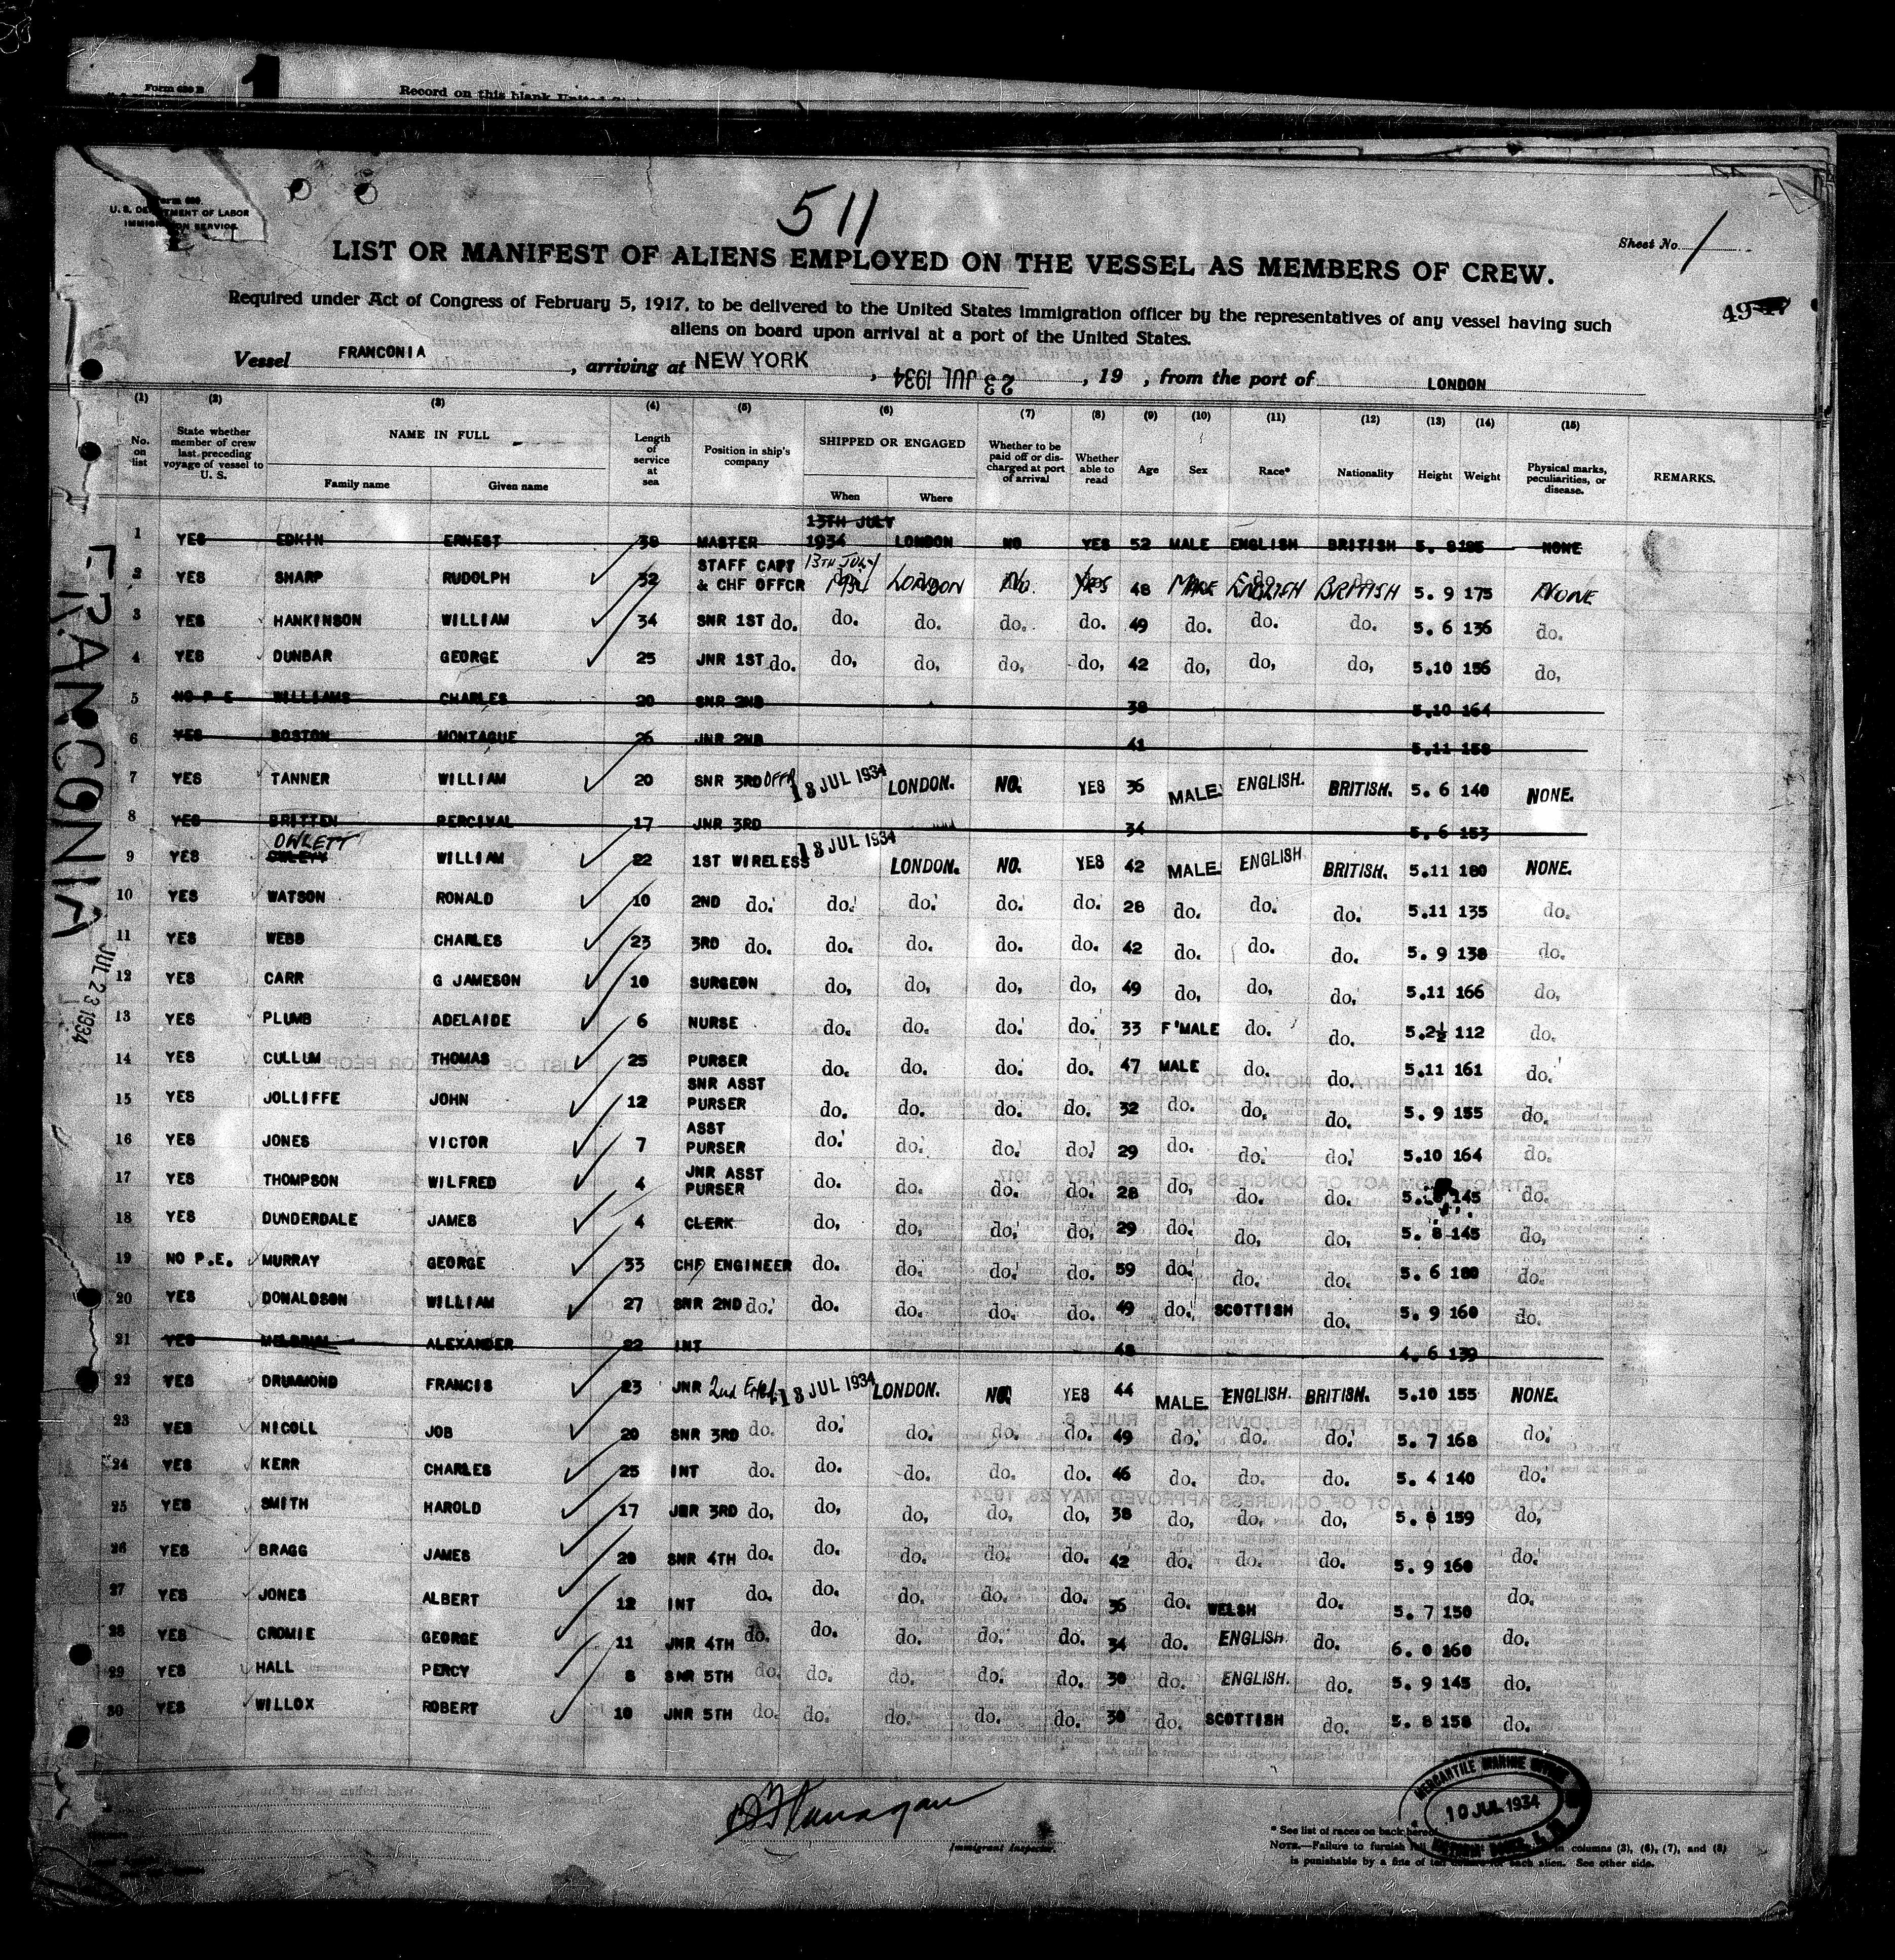 Form 689 B
1
Record on this blank United
511
Form 689
U. S. DEPARTMENT OF LABOR
IMMIGRATION SERVICE
Sheet No. 1
LIST OR MANIFEST OF ALIENS EMPLOYED ON THE VESSEL AS MEMBERS OF CREW.
Required under Act of Congress of February 5, 1917, to be delivered to the United States immigration officer by the representatives of any vessel having such
aliens on board upon arrival at a port of the United States.
49
Vessel FRANCONIA, arriving at NEW YORK, 23 JUL 1934, 19 , from the port of LONDON
(1) (2) (3) (4) (5) (6) (7) (8) (9) (10) (11) (12) (13) (14) (15)
No. on list
State whether member of crew last preceding voyage of vessel to U. S.
NAME IN FULL
Family name Given name
Length of service at sea
Position in ship's company
SHIPPED OR ENGAGED
When Where
Whether to be paid off or discharged at port of arrival
Whether able to read
Age Sex Race* Nationality Height Weight
Physical marks, peculiarities, or disease.
REMARKS.
13TH JULY
1 YES EDKIN ERNEST 38 MASTER 1934 LONDON NO YES 52 MALE ENGLISH BRITISH 5. 8 185 NONE
2 YES SHARP RUDOLPH 32 STAFF CAPT & CHF OFFCR 13TH JULY 1934 LONDON No. Yes 48 MALE ENGLISH BRITISH 5. 9 175 NONE
3 YES HANKINSON WILLIAM 34 SNR 1ST do. do. do. do. do. 49 do. do. do. 5. 6 136 do.
4 YES DUNBAR GEORGE 25 JNR 1ST do. do, do, do, do, 42 do, do, do, 5.10 156 do,
5 NO P E WILLIAMS CHARLES 20 SNR 2ND 38 5.10 164
6 YES BOSTON MONTAGUE 26 JNR 2ND 41 5.11 158
7 YES TANNER WILLIAM 20 SNR 3RD OFFR 18 JUL 1934 LONDON. NO. YES 36 MALE ENGLISH. BRITISH. 5. 6 140 NONE.
8 YES BRITTEN PERCIVAL 17 JNR 3RD 34 5. 6 153
9 YES OWLETT WILLIAM 22 1ST WIRELESS 18 JUL 1934 LONDON. NO. YES 42 MALE ENGLISH BRITISH. 5.11 180 NONE.
10 YES WATSON RONALD 10 2ND do. do. do. do. do. 28 do. do. do. 5.11 135 do.
11 YES WEBB CHARLES 23 3RD do. do. do. do. do. 42 do. do. do. 5. 9 138 do.
12 YES CARR G JAMESON 10 SURGEON do, do, do, do, 49 do, do, do, 5.11 166 do,
13 YES PLUMB ADELAIDE 6 NURSE do. do. do. do. 33 F'MALE do. do. 5.2½ 112 do.
14 YES CULLUM THOMAS 25 PURSER do. do. do. do. 47 MALE do. do. 5.11 161 do.
15 YES JOLLIFFE JOHN 12 SNR ASST PURSER do. do. do. do. 32 do. do. do. 5. 9 155 do.
16 YES JONES VICTOR 7 ASST PURSER do. do. do. do. 29 do. do. do. 5.10 164 do.
17 YES THOMPSON WILFRED 4 JNR ASST PURSER do. do. do. do. 28 do, do. do. 5. 145 do.
18 YES DUNDERDALE JAMES 4 CLERK do, do, do, do, 29 do. do, do, 5. 8 145 do,
19 NO P.E. MURRAY GEORGE 33 CHF ENGINEER do. do. do. do. 59 do. do. do. 5. 6 180 do.
20 YES DONALDSON WILLIAM 27 SNR 2ND do. do. do. do. do. 49 do. SCOTTISH do. 5. 9 160 do.
21 YES ALEXANDER 22 INT 48 4. 6 139
22 YES DRUMMOND FRANCIS 23 JNR 2nd 18 JUL 1934 LONDON. NO. YES 44 MALE ENGLISH. BRITISH. 5.10 155 NONE.
23 YES NICOLL JOB 20 SNR 3RD do. do. do. do. do. 49 do. do. do. 5. 7 168 do.
24 YES KERR CHARLES 25 INT do. do. do. do. do. 46 do. do. do. 5. 4 140 do.
25 YES SMITH HAROLD 17 JNR 3RD do, do, do, do, do, 38 do, do, do, 5. 8 159 do,
26 YES BRAGG JAMES 20 SNR 4TH do. do. do. do. do. 42 do. do. do. 5. 9 160 do.
27 YES JONES ALBERT 12 INT do. do. do. do. do. 36 do. WELSH do. 5. 7 150 do.
28 YES CROMIE GEORGE 11 JNR 4TH do. do. do. do. do. 34 do. ENGLISH. do. 6. 0 160 do.
29 YES HALL PERCY 8 SNR 5TH do. do. do. do. do. 30 do. ENGLISH. do. 5. 9 145 do.
30 YES WILLOX ROBERT 10 JNR 5TH do. do. do. do. do. 30 do. SCOTTISH do. 5. 8 158 do.
FRANCONIA
JUL 23 1934
Flanagan
Immigrant Inspector.
MERCANTILE MARINE OFFICE
10 JUL 1934
* See list of races on back hereof.
NOTE.—Failure to furnish full in columns (3), (6), (7), and (8)
is punishable by a fine of ten dollars for each alien. See other side.